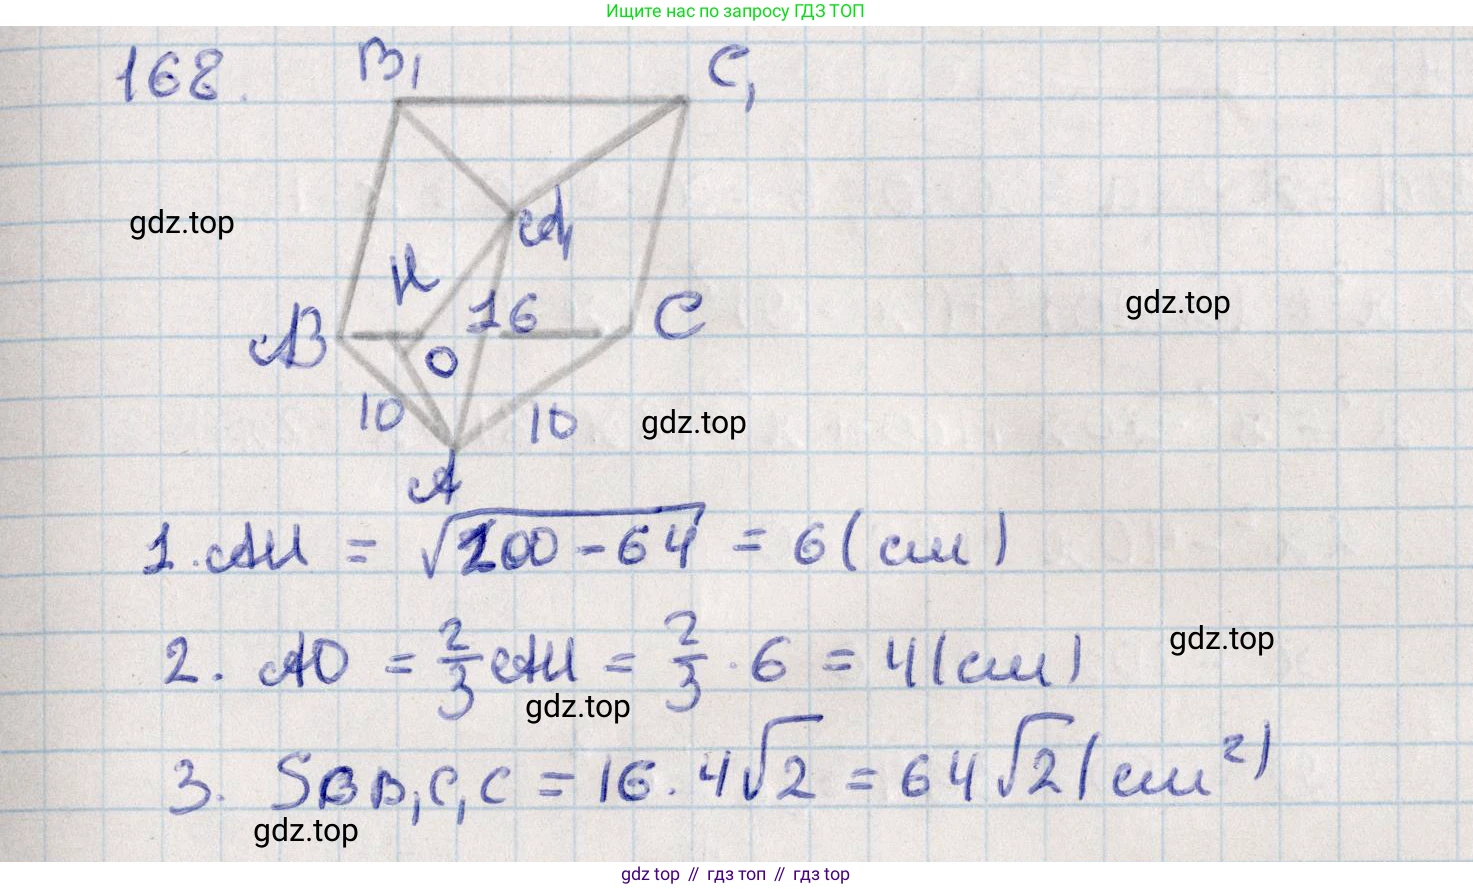 Ищите нас по запросу ГДЗ ТОП
168.
B₁
C₁
gdz.top
A₁
H
16
C
gdz.top
B
O
10
10
gdz.top
A
1. AH = √100 - 64 = 6 (см)
2. AO = 2/3 AH = 2/3 · 6 = 4 (см)
gdz.top
gdz.top
3. SBB₁C₁C = 16 · 4√2 = 64√2 (см²)
gdz.top
gdz top // гдз топ // гдз top